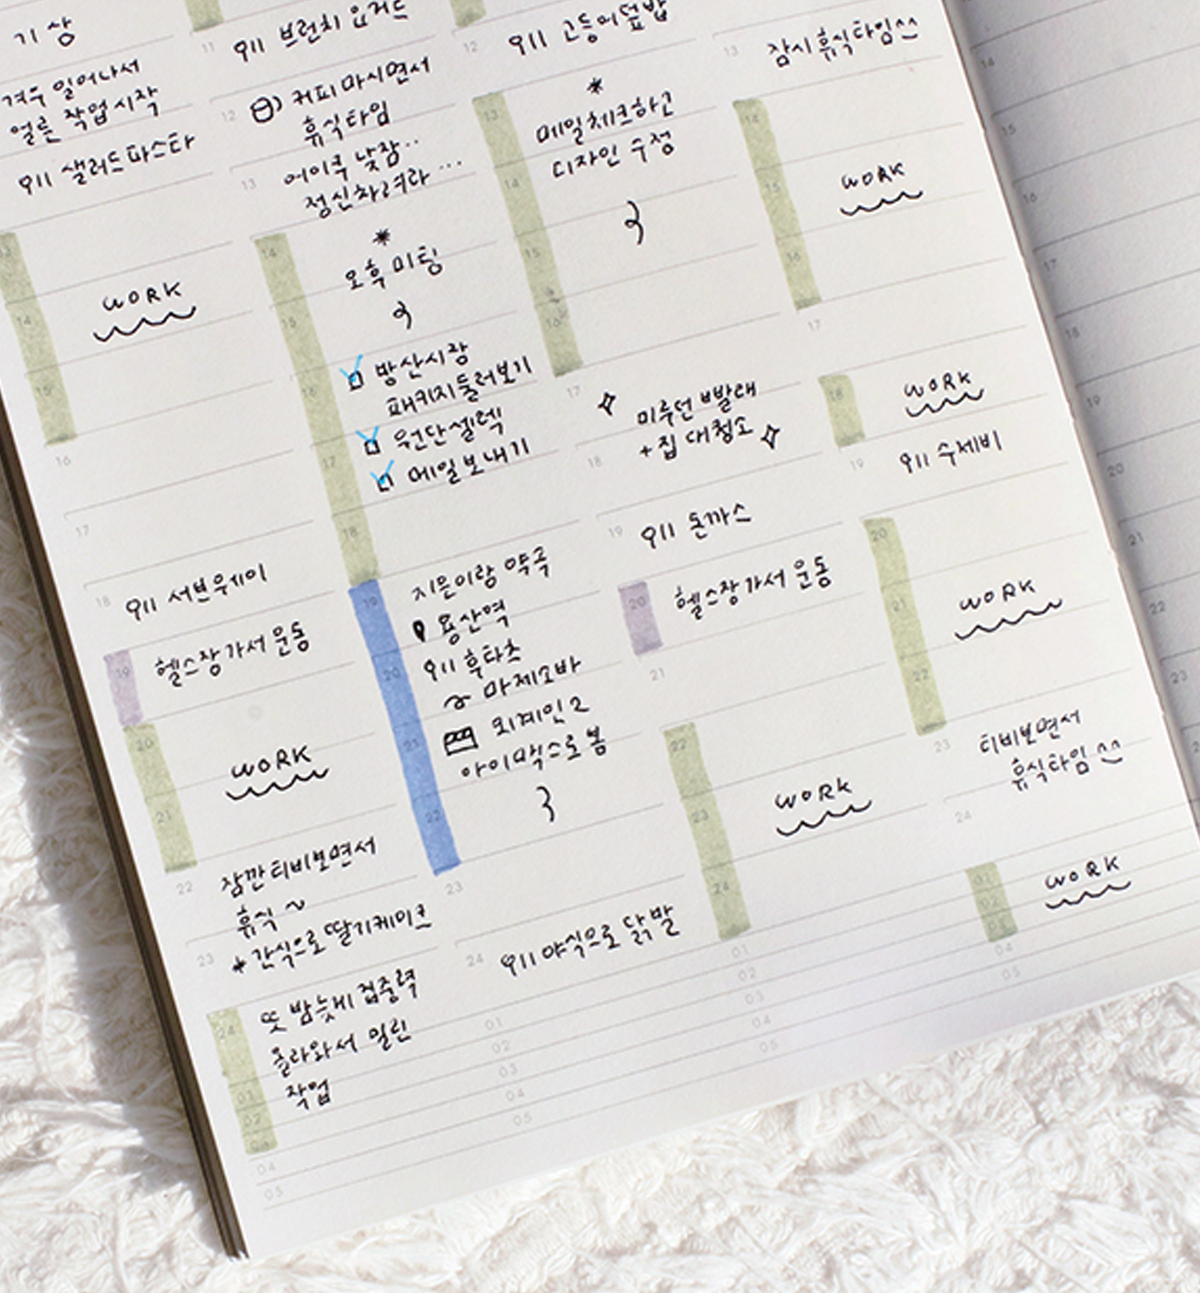 기상
겨우 일어나서
얼른 작업시작
샐러드파스타
13
14
WORK
15
16
17
18
서브웨이
19
헬스장가서 운동
20
WORK
21
22
잠깐 티비보면서
휴식~
23
+간식으로 딸기케이크
24
또 밤늦게 집중력
올라와서 밀린
작업
01
02
03
04
05
11
브런치 요거트
12
커피 마시면서
휴식타임
13
어이쿠 낮잠..
정신차려라 ...
14
오후 미팅
15
방산시장
16
패키지둘러보기
원단셀렉
17
메일보내기
18
19
지은이랑 약속
용산역
후타츠
20
마제소바
외계인2
21
아이맥스로 봄
22
23
24
야식으로 닭발
01
02
03
04
05
12
고등어덮밥
13
메일체크하고
디자인 수정
14
15
16
17
미루던 빨래
+집 대청소
18
19
돈까스
20
헬스장가서 운동
21
22
23
WORK
24
01
02
03
04
05
13
잠시휴식타임^^
14
15
WORK
16
17
18
WORK
19
수제비
20
21
WORK
22
23
티비보면서
휴식타임^^
24
01
WORK
02
03
04
05
14
15
16
17
18
19
20
21
22
23